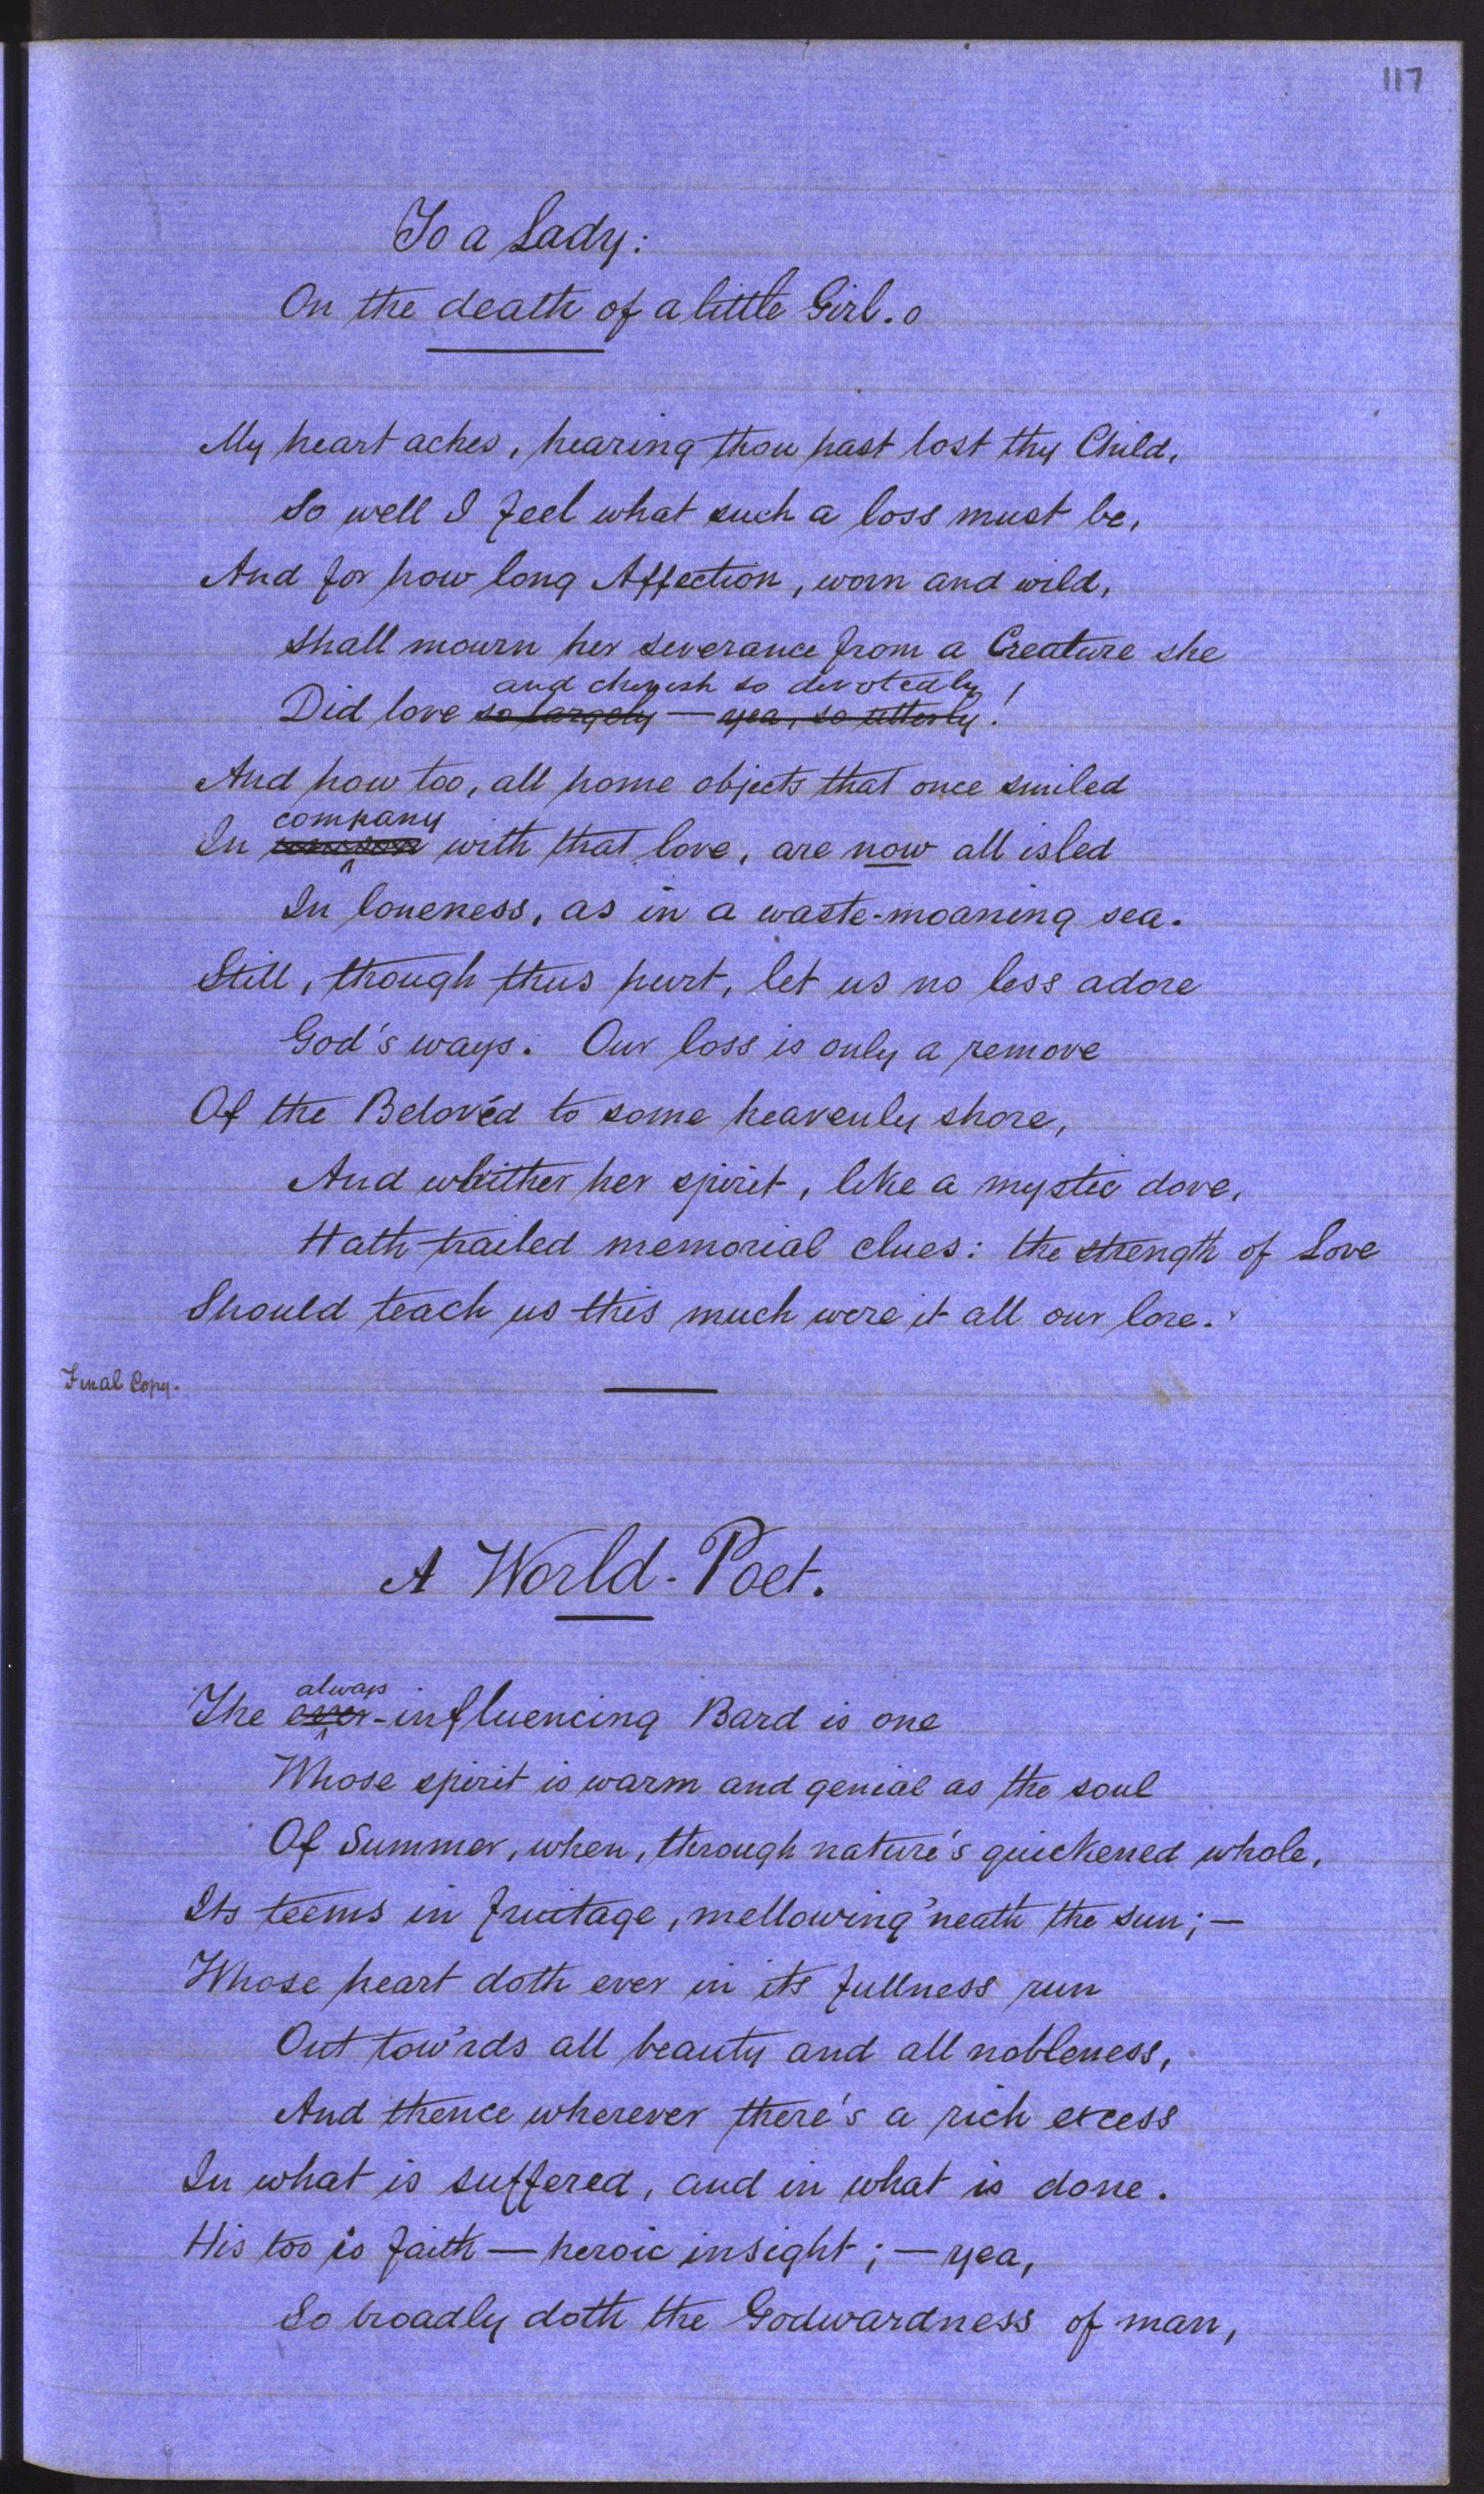 117
To a Lady:
On the death of a little Girl.
My heart aches, hearing thou hast lost thy Child,
So well I feel what such a loss must be,
And for how long Affection, worn and wild,
Shall mourn her severance from a Creature she
and cherish so devotedly!
Did love so largely — yea, so utterly!
And how too, all home objects that once smiled
company
In with that love, are now all isled
In loneness, as in a waste-moaning sea.
Still, though thus hurt, let us no less adore
God's ways. Our loss is only a remove
Of the Belovéd to some heavenly shore,
And whither her spirit, like a mystic dove,
Hath trailed memorial clues: the strength of Love
Should teach us this much were it all our lore.
Final Copy.
A World-Poet.
always
The ever-influencing Bard is one
Whose spirit is warm and genial as the soul
Of Summer, when, through nature's quickened whole,
Its teems in fruitage, mellowing 'neath the sun; —
Whose heart doth ever in its fullness run
Out tow'rds all beauty and all nobleness,
And thence wherever there's a rich excess
In what is suffered, and in what is done.
His too is faith — heroic insight; — yea,
So broadly doth the Godwardness of man,